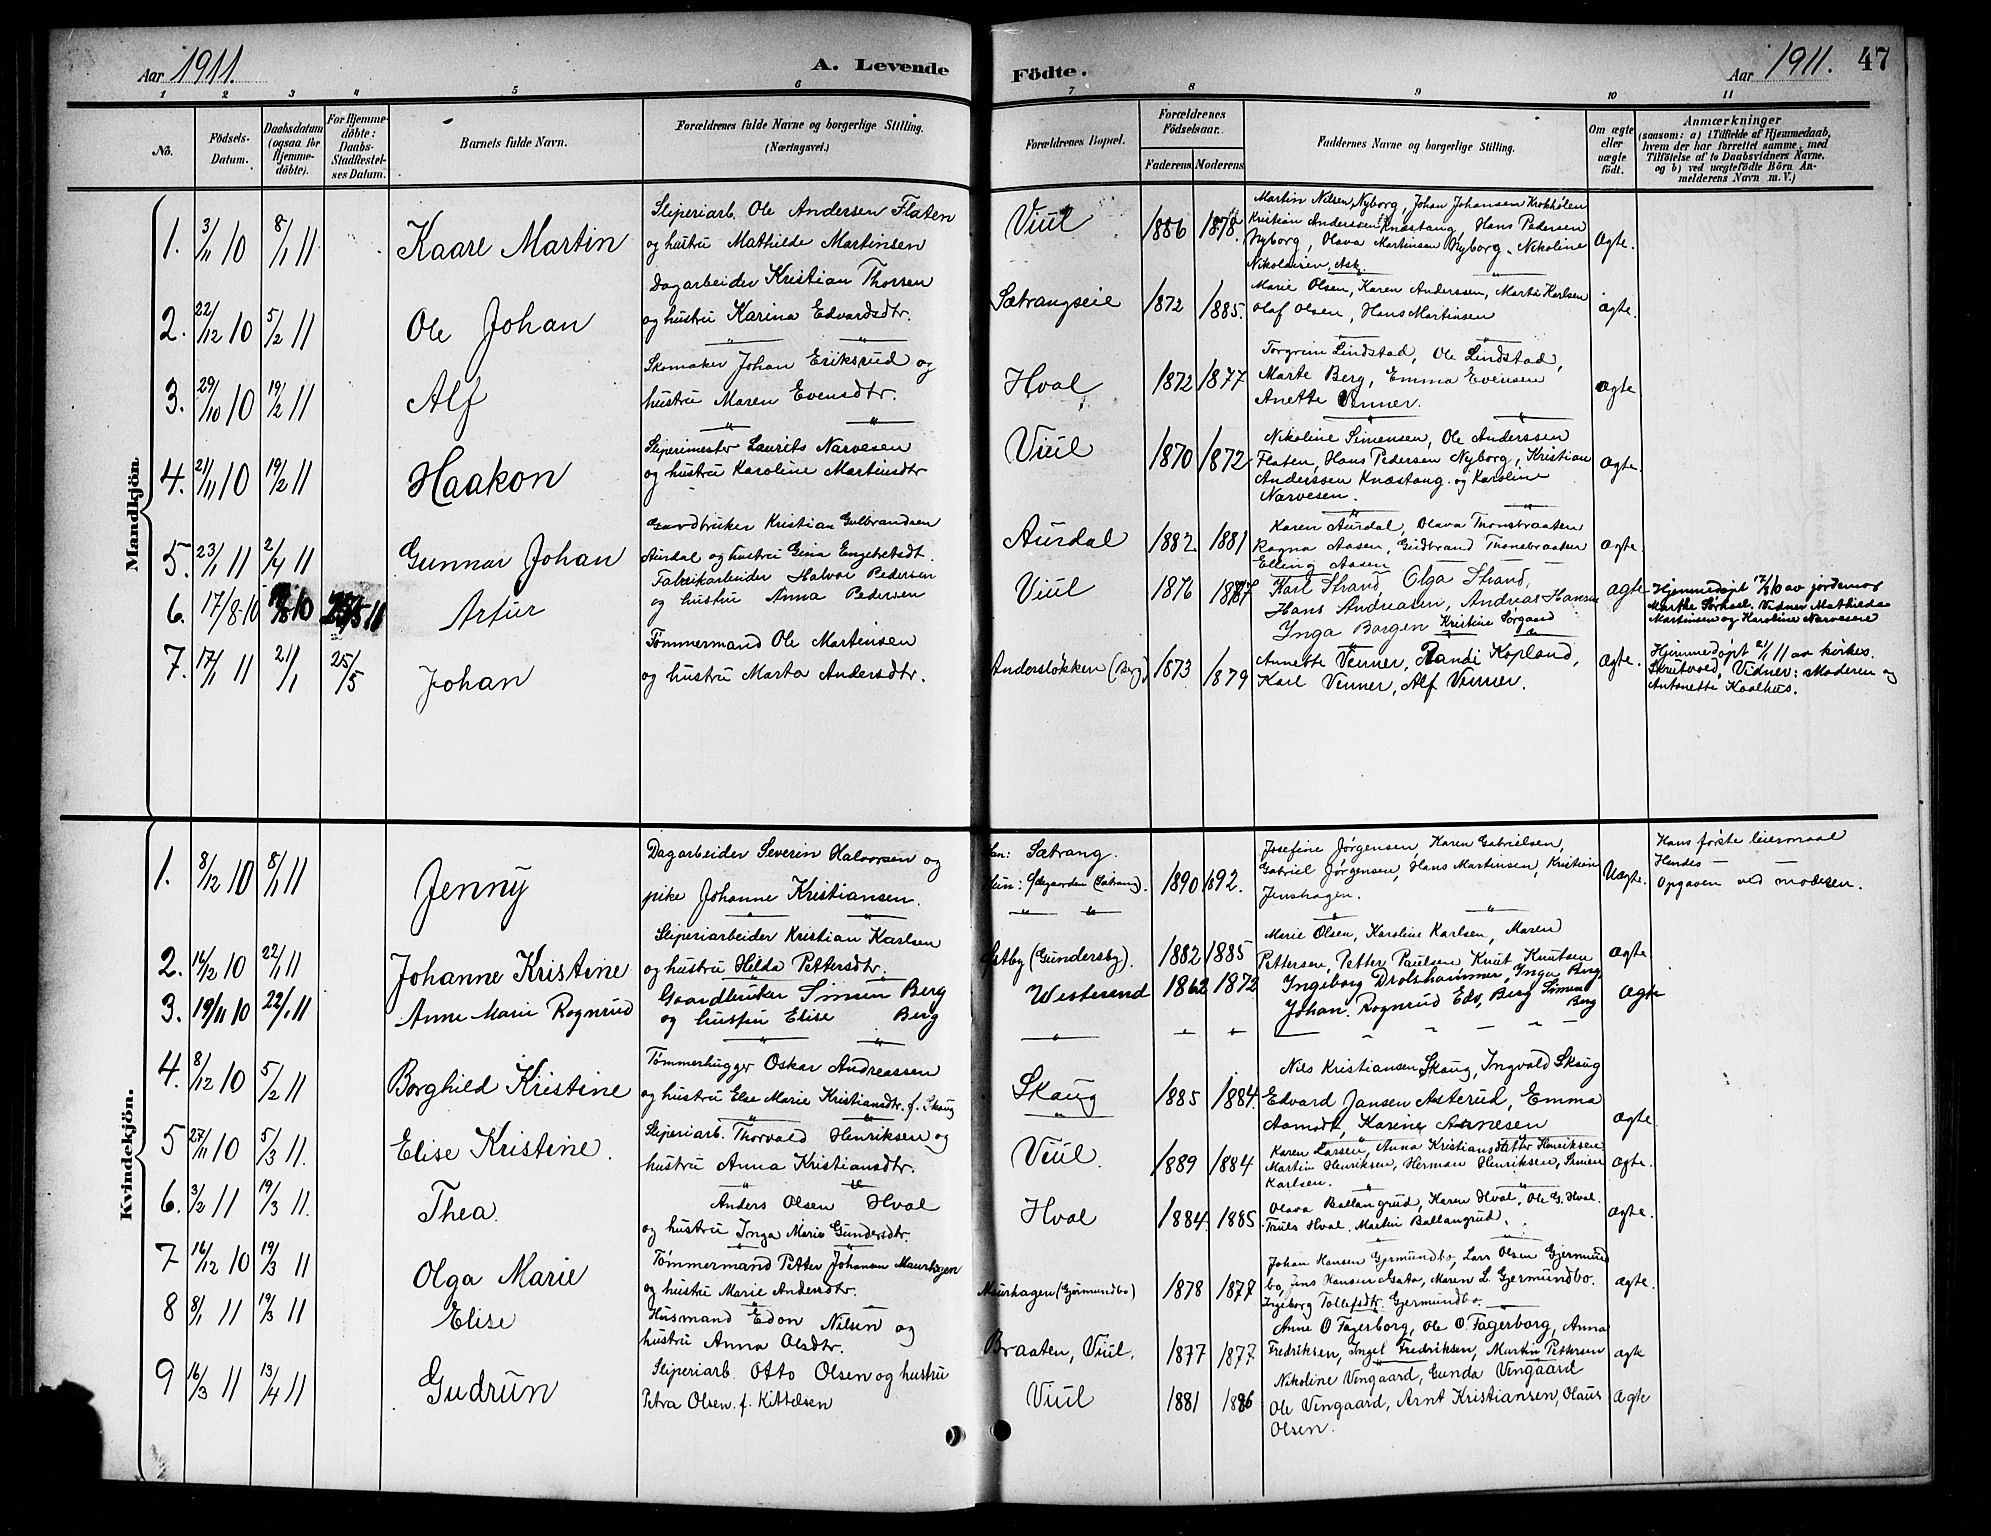 Aar 1911.
A. Levende
Födte.
Aar 1911.
47
1 2 3 4 5 6 7 8 9 10 11
No.
Födsels-
Datum.
Daabsdatum
(ogsaa for
Hjemme-
döbte).
For Hjemme-
döbte:
Daabs-
Stadfæstel-
ses Datum.
Barnets fulde Navn.
Forældrenes fulde Navne og borgerlige Stilling.
(Næringsvei.)
Forældrenes Bopæl.
Forældrenes
Födselsaar.
Faderens.
Moderens.
Faddernes Navne og borgerlige Stilling.
Om ægte
eller
uægte
födt.
Anmærkninger
(saasom: a) i Tilfælde af Hjemmedaab,
hvem der har forrettet samme, med
Tilföielse af to Daabsvidners Navne,
og b) ved uægtefödte Börn An-
melderens Navn m. V.)
Mandkjön
1. 3/11 10 8/1 11 Kaare Martin
Sliperiarb. Ole Andersen Flaten
og hustru Mathilde Martinsen
Viul 1886 1878.
Martin Nilsen Nyborg, Johan Johansen Krokhølen
Kristian Anderssen Knæstang, Hans Pedersen
Nyborg, Olava Martinsen Nyborg. Nikoline
Nikolaisen, Ask.
Ægte.
2. 22/12 10 5/2 11 Ole Johan
Dagarbeider Kristian Thorsen
og hustru Karina Edvardsdtr.
Sætrangseie 1872 1885.
Marie Olsen, Karen Anderssen, Marta Karlsen
Olaf Olsen, Hans Martinsen
ægte.
3. 29/10 10 19/2 11 Alf
Skomaker Johan Eriksrud og
hustru Maren Evensdtr.
Hval 1872 1877
Torgrim Lindstad, Ole Lindstad,
Marte Berg, Emma Evensen
Anette Venner.
ægte
4. 21/11 10 19/2 11 Haakon
Sliperimester Laurits Narvesen
og hustru Karoline Martinsdtr
Viul 1870 1872
Nikoline Simensen, Ole Anderssen
Flaten, Hans Pedersen Nyborg, Kristian
Anderssen Knæstang. og Karoline
Narvesen.
ægte.
5. 23/1 11 2/4 11 Gunnar Johan
Gaardbruker Kristian Gulbrandsen
Aurdal og hustru Gina Engebretsdt.
Aurdal 1882. 1881
Karen Aurdal, Olava Thonsbraaten
Ragna Aasen, Gudbrand Thonsbraaten
Elling Aasen
ægte
6. 17/8-10 Artur
Fabrikarbeider Halvor Pedersen
og hustru Anna Pedersen
Viul 1876
Karl Strand, Olga Strand,
Hans Andreasen, Andreas Hansen
Inga Borgen Kristine Sørgaard
ægte
Hjemmedøpt 17/8 10 av jordemor
Marthe Sørhæl. Vidner Mathilde
Martinsen og Karoline Narvesen
7. 17/1 11 21/1 25/5 Johan
Tømmermand Ole Martinsen
og hustru Marta Andersdtr.
Andersløkken (Berg) 1873 1879
Annette Venner, Randi Kopland,
Karl Venner, Alf Venner.
Ægte.
Hjemmedøpt 21/1 11 av kirkes.
Skrutvold, Vidner: Moderen og
Antonette Kaalhus.
Kvindekjön.
1. 8/12 10 8/1 11 Jenny
Dagarbeider Severin Halvorsen og
pike Johanne Kristiansen.
Han: Sætrang.
Hun: Ødegaarden (Sætrang). 1890 1892.
Josefine Jørgensen, Karen Gabrielsen,
Gabriel Jørgensen, Hans Martinsen, Kristian
Jenshagen.
Uægte.
Hans første leiermaal
Hendes — —
Opgaven ved moderen.
2. 16/12 10 22/1 11 Johanne Kristine
Sliperiarbeider Kristian Karlsen
og hustru Hilda Pettersdtr.
Østby (Gundersby). 1882 1885
Marie Olsen, Karoline Karlsen, Maren
Pettersen, Petter Paulsen Knut Knutsen
ægte.
3. 19/11 10 22/1 11 Anne Marie Rognrud
Gaardbruker Simen Berg
og hustru Elise Berg
Westerend 1862 1872
Ingeborg Drolshammer, Inga Berg
Johan Rognrud Edv. Berg Simen
Berg
Ægte
4. 8/12 10 5/2 11 Borghild Kristine
Tømmerhugger Oskar Andreassen
og hustru Else Marie Kristiansdtr. f. Skaug
Skaug 1885 1884.
Nils Kristiansen Skaug, Ingvald Skaug
Edvard Jansen Asterud, Emma
Aamodt, Karine Arnesen
ægte.
5 27/11 10 5/3 11. Elise Kristine.
Sliperiarb. Thorvald Henriksen og
hustru Anna Kristiansdtr.
Viul. 1889 1884
Karen Larsen, Anna Kristiansdatter Henriksen
Martin Henriksen, Herman Henriksen, Simen
Karlsen.
ægte.
6. 3/2 11 19/3 11. Thea.
Anders Olsen Hval
og hustru Inga Marie Gundersdtr.
Hval 1884. 1885
Olava Ballangrud, Karen Hval, Ole G. Hval.
Truls Hval. Martin Ballangrud.
ægte.
7 16/12 10 19/3 11 Olga Marie
Tømmermand Petter Johansen Maurhagen
og hustru Marie Andersdtr.
Maurhagen (Gjermundbo) 1878 1877
Johan Hansen Gjermundbo, Lars Olsen Gjermund
bo, Jens Hansen Gata, Maren L. Gjermundbo.
Ingeborg Tollefsdtr. Gjermundbo.
ægte.
8 8/1 11 19/3 11 Elise
Husmand Edon Nilsen og
hustru Anna Olsdtr.
Braaten, Viul. 1877 1877
Anne O Fagerborg, Ole O. Fagerborg, Anna
Fredriksen, Ingel Fredriksen, Martin Pettersen
ægte
9 16/3 11 13/4 11 Gudrun
Sliperiarb. Otto Olsen og hustru
Petra Olsen. f. Kittelsen
Viul 1881 1886
Nikoline Vengaard, Gunda Vengaard
Ole Vengaard, Arnt Kristiansen, Olaus
Olsen.
Ægte